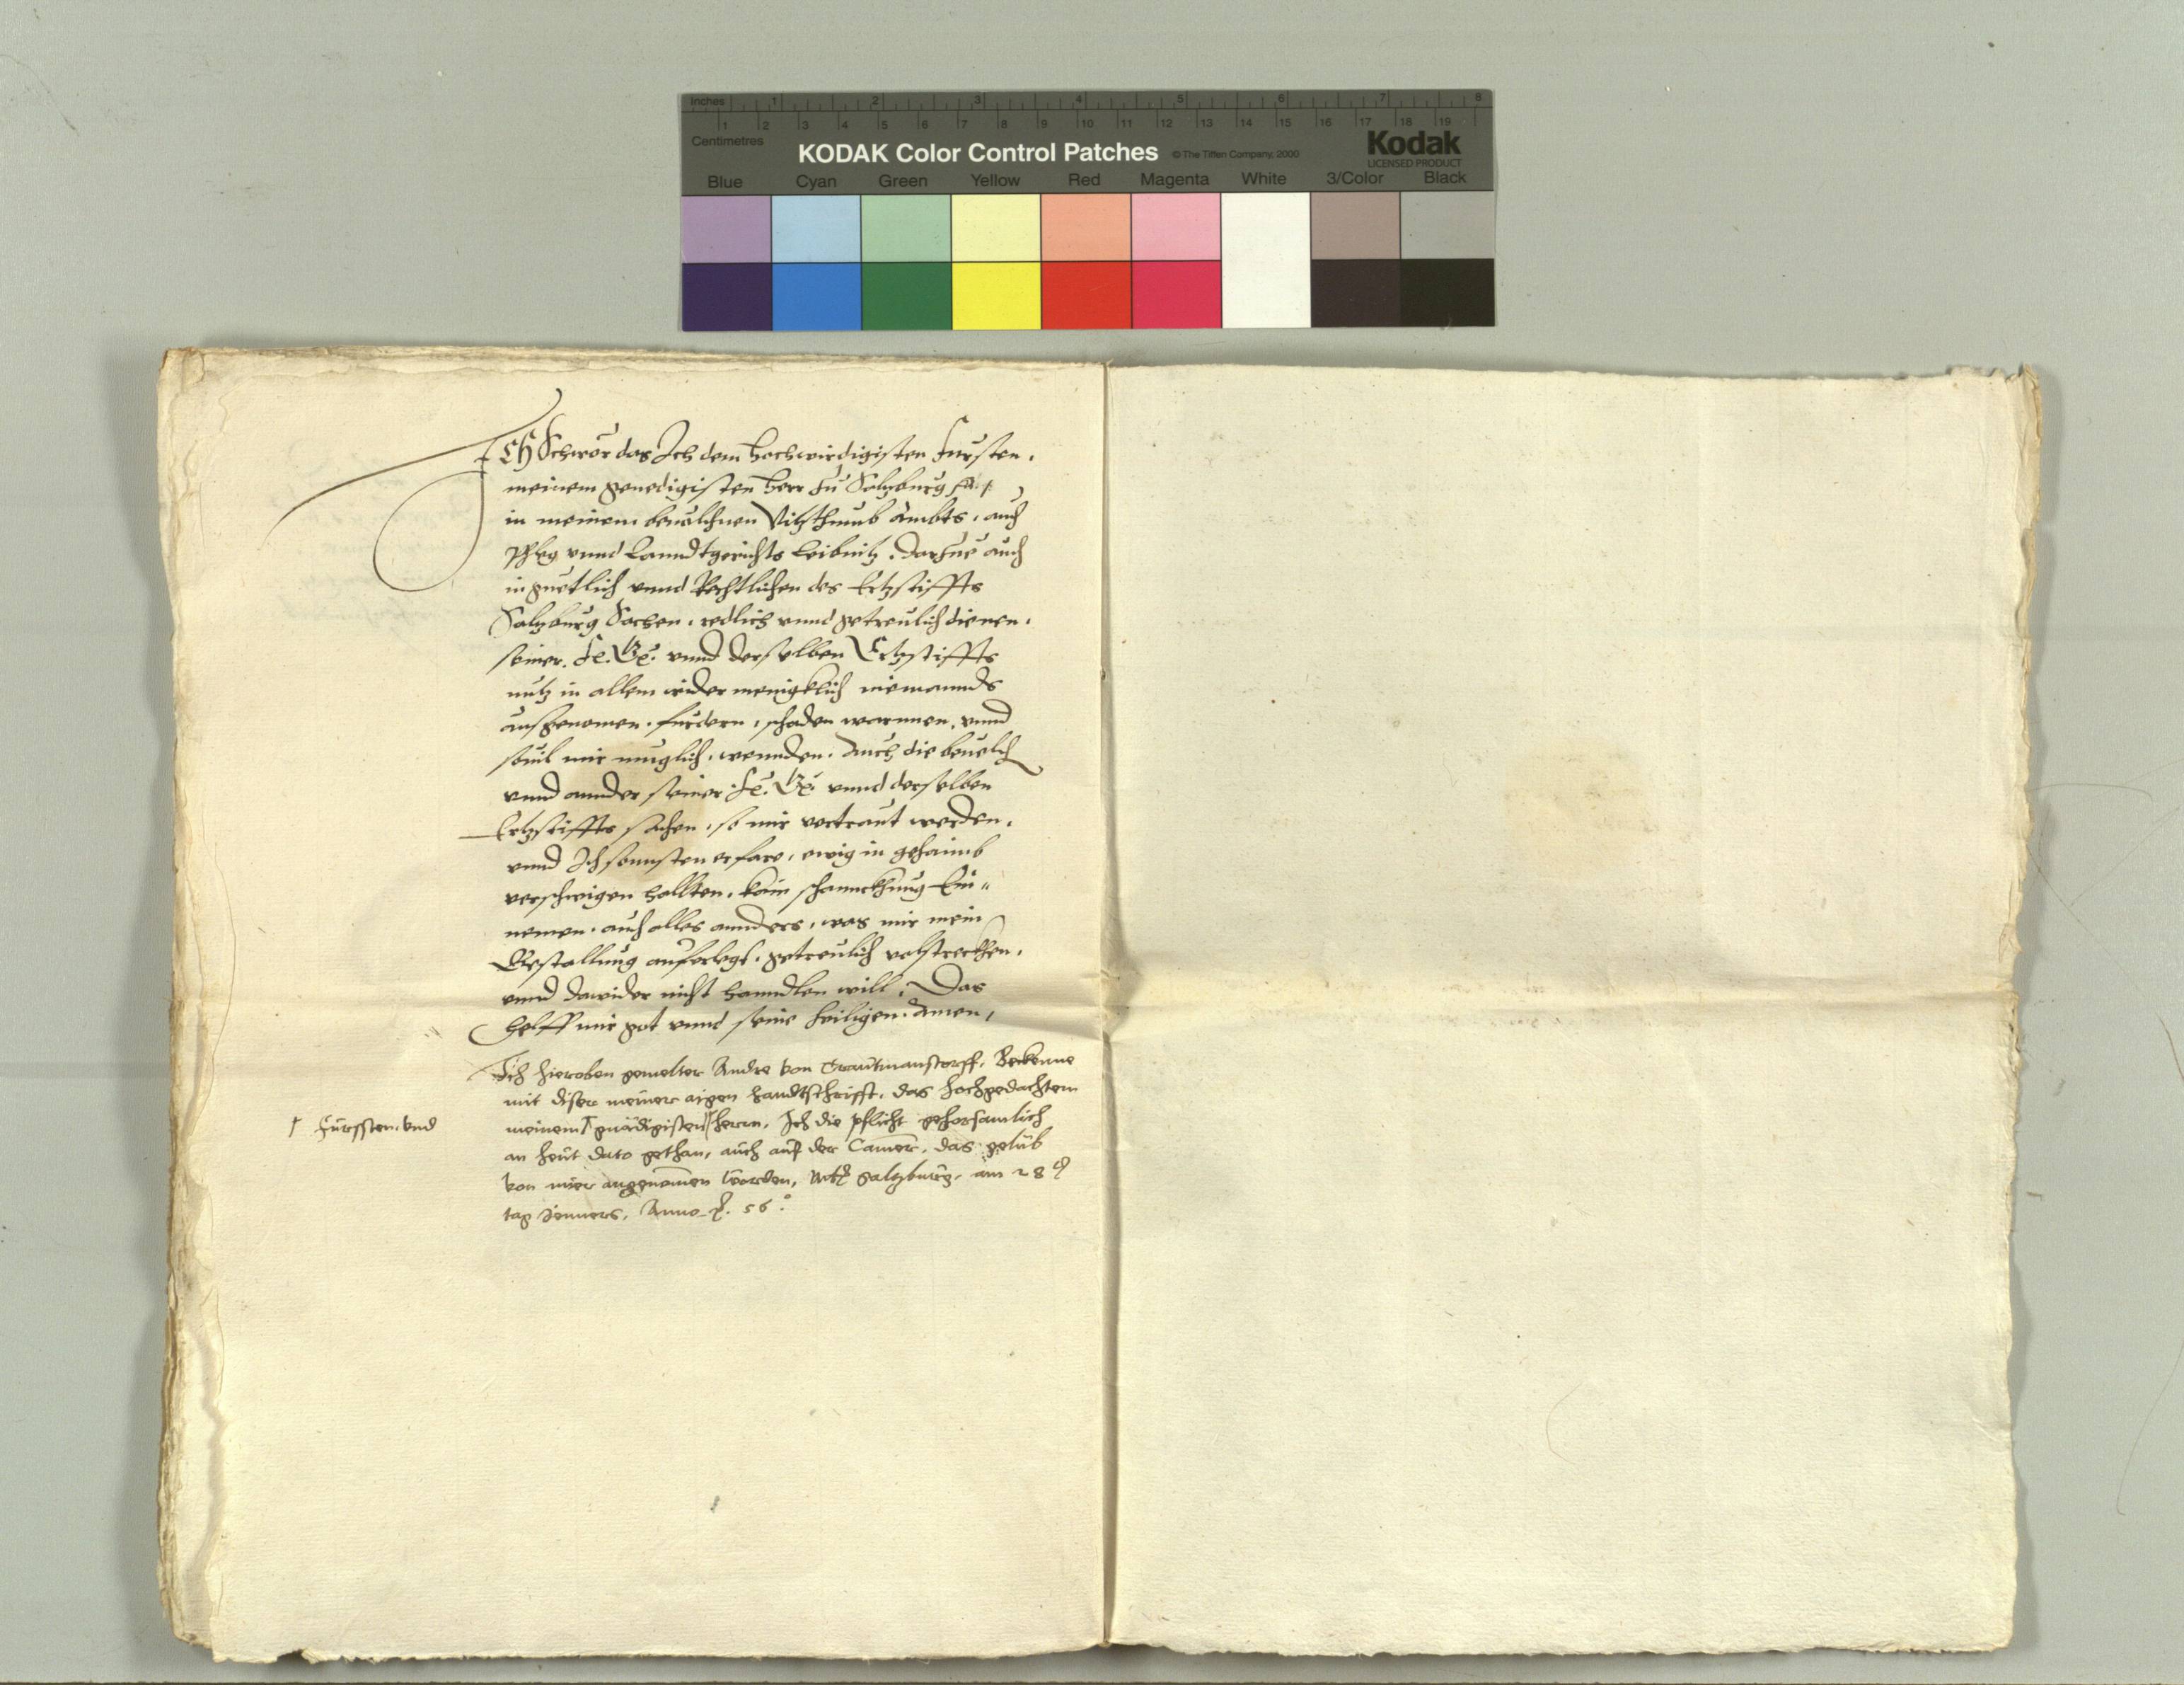 Inches 1 2 3 4 5 6 7 8
1 2 3 4 5 6 7 8 9 10 11 12 13 14 15 16 17 18 19
Centimetres
KODAK Color Control Patches © The Tiffen Company, 2000 Kodak
LICENSED PRODUCT
Blue Cyan Green Yellow Red Magenta White 3/Color Black
ICH Schwör das Ich dem hochwirdigisten Fursten.
meinem genedigisten herr zu Salzburg
in meinem beuolchnen Vitzthumb Ambts, auch
Pfleg vnnd Lanndtgerichts Leibnitz. Darzue auch
in guetlich vnnd Rechtlichen des Ertzstiffts
Salzburg Sachen, redlich vnnd getreulich dienen.
seiner. Fe. Ge. vnnd derselben Ertzstiffts
nutz in allem wider menigklich niemannds
ausgenomen. furdern, schaden warnnen. vnnd
souil mir muglich, wennden. Auch die beuelch
vnnd annder seiner Fe. Ge. vnnd derselben
Ertzstiffts sachen, so mir vertraut werden.
vnnd Ich sonnsten erfare, ewig in gehaimb
verschwigen hallten. kain schannckhung Ein"
nemen. auch alles annders, was mir mein
Bestallung auferlegt. getreulich volstreckhen.
vnnd dawider nicht hanndlen will, Das
helff mir got vnnd seine heiligen. Amen,
Ich hieroben gemelter Andre von Trautmanstorff, Bekenne
mit diser meiner aigen handtschrifft, das hochgedachtem
meinem † gnädigisten herrn, Ich die pflicht gehorsamlich
† Fürssten. vnd
an heüt dato gethan, auch auf der Camer, das gelüb
von mier angenomen worden, Salzburg, am 28
tag Jenners, Anno 56.